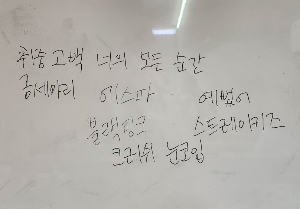 취중고백 너의 모든 순간
금세마리 에스파 예뻤어
블랙핑크 스트레이키즈
크러쉬 눈코입